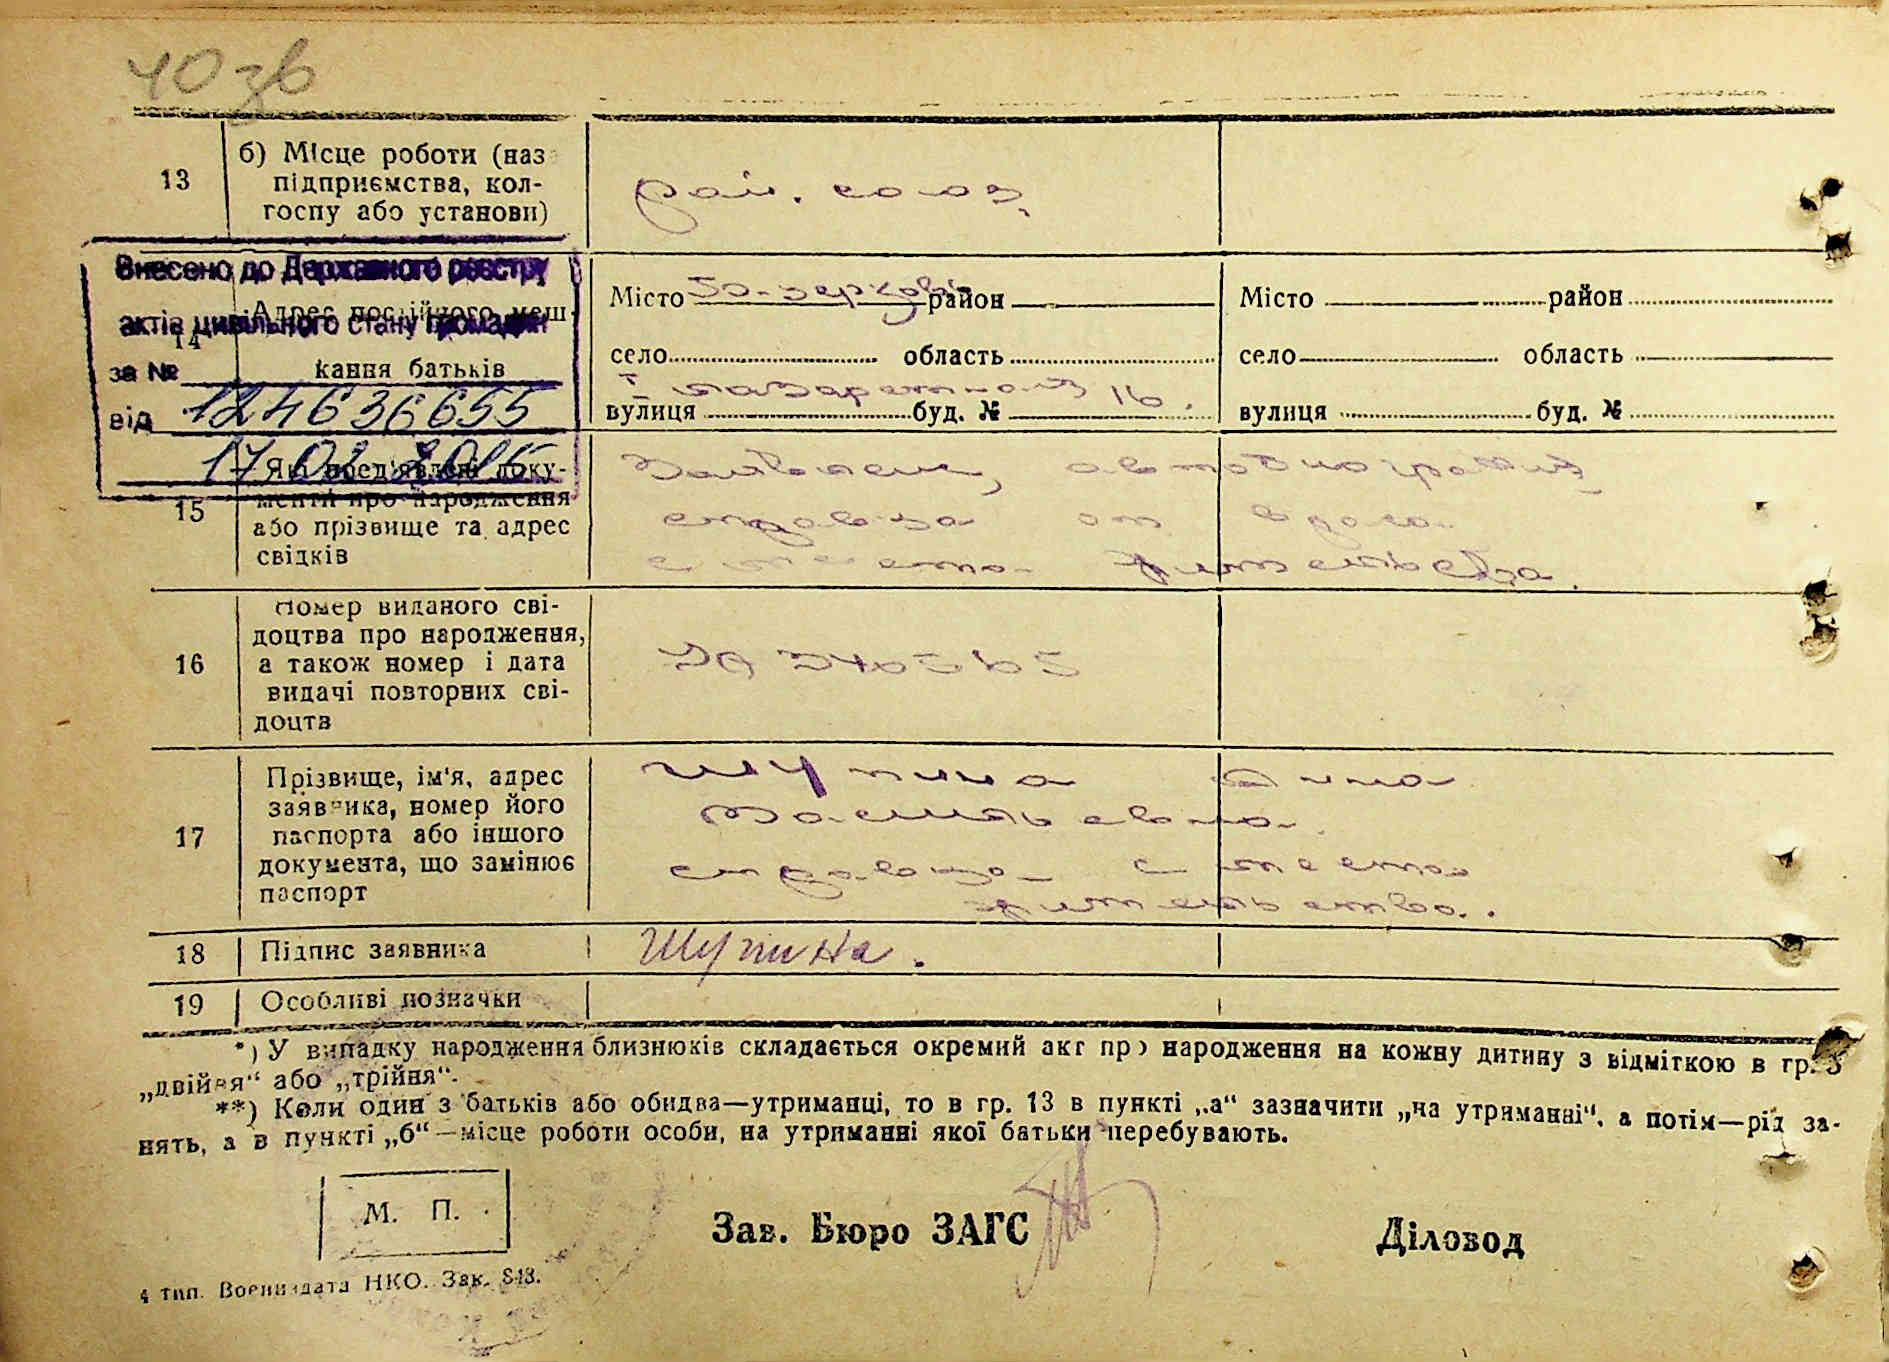 40 зв
13
б) Місце роботи (наз
підприємства, кол-
госпу або установи)
рай. союз.
Внесено до Державного реєстру
актів цивільного стану громадян
за №
від 124636655
17 02
14
Адрес постійного меш-
кання батьків
Місто район
село область
вулиця буд. № 16.
Місто район
село область
вулиця буд. №
15
Які пред'явлені доку-
менти про народження
або прізвище та адрес
свідків
справка
с места жительства.
16
Номер виданого сві-
доцтва про народження,
а також номер і дата
видачі повторних сві-
доцтв
17
Прізвище, ім'я, адрес
заявника, номер його
паспорта або іншого
документа, що замінює
паспорт
Шупина Анна
Васильевна
справка с места
жительства.
18 Підпис заявника
Шупина.
19 Особливі позначки
*) У випадку народження близнюків складається окремий акт про народження на кожну дитину з відміткою в гр. 3
„двійня“ або „трійня“.
**) Коли один з батьків або обидва—утриманці, то в гр. 13 в пункті „а“ зазначити „на утриманні“, а потім—рід за-
нять, а в пункті „б“—місце роботи особи, на утриманні якої батьки перебувають.
М. П.
Зав. Бюро ЗАГС
Діловод
4 тип. Воениздата НКО. Зак. 813.